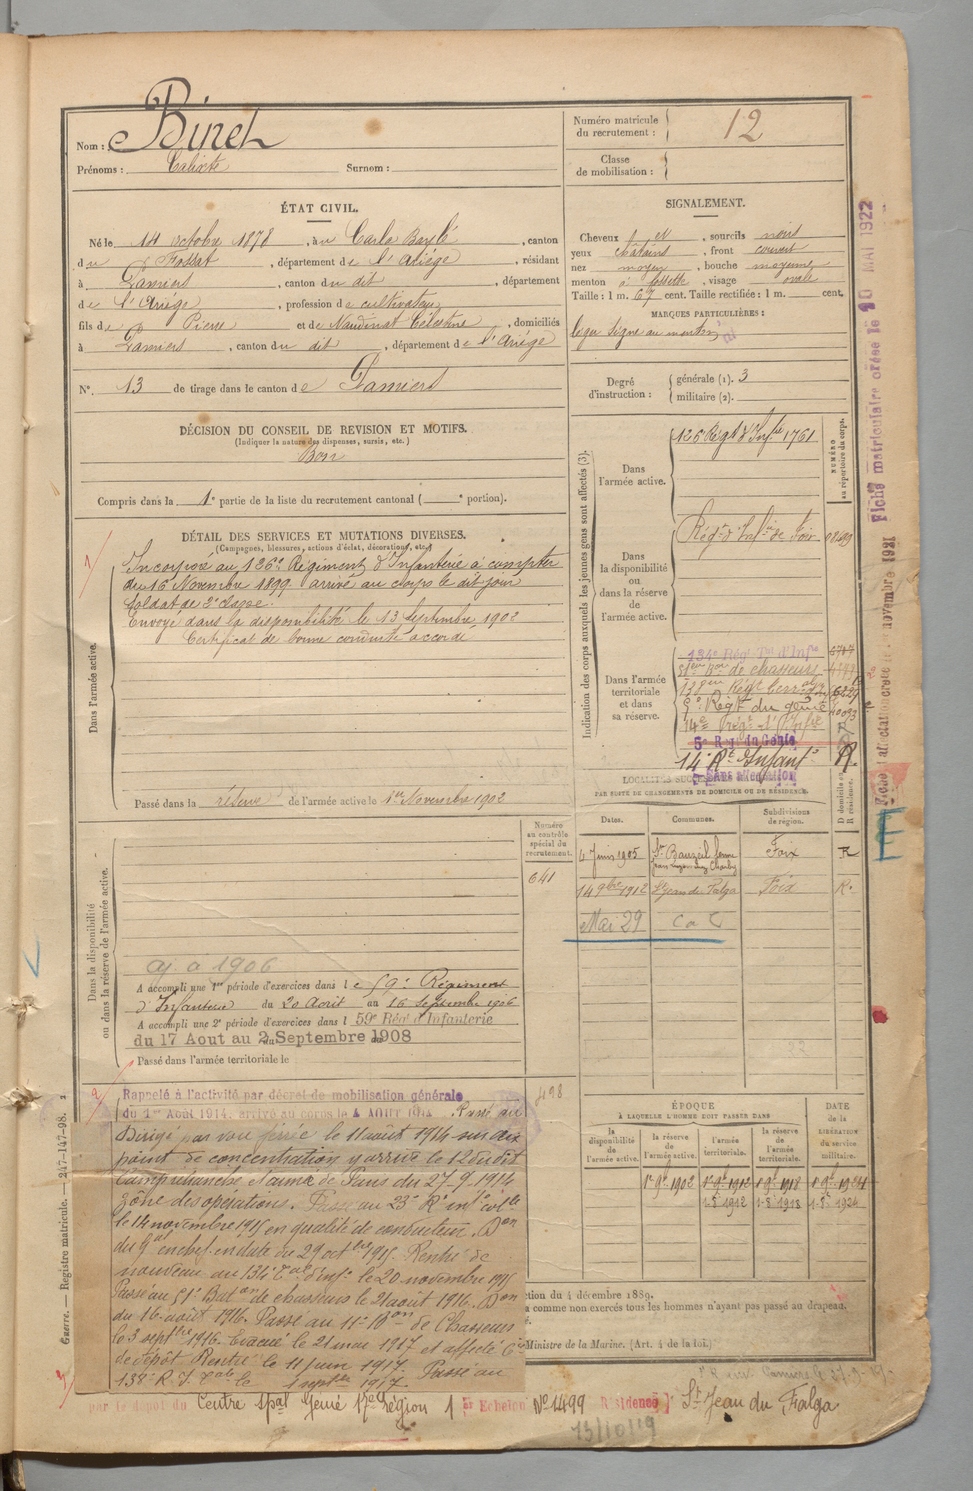 Nom : Binet
Prénoms : Calixte Surnom :
Numéro matricule du recrutement : 12
Classe de mobilisation :
ÉTAT CIVIL.
Né le 14 octobre 1878, à u Carla Bayle, canton
du Fossat, département de l'Ariège, résidant
à Pamiers, canton du dit, département
de l'Ariège, profession de cultivateur
fils de Pierre et de Naudinat Célestine, domiciliés
à Pamiers, canton du dit, département de l'Ariège
N°. 13 de tirage dans le canton de Pamiers
SIGNALEMENT.
Cheveux et, sourcils noirs
yeux châtains, front couvert
nez moyen, bouche moyenne
menton à fossette, visage ovale
Taille : 1 m. 67 cent. Taille rectifiée : 1 m. cent.
MARQUES PARTICULIÈRES :
léger signe au menton
Degré d'instruction : générale (1). 3
militaire (2).
DÉCISION DU CONSEIL DE REVISION ET MOTIFS.
(Indiquer la nature des dispenses, sursis, etc.)
Bon
Compris dans la 1e partie de la liste du recrutement cantonal ( e portion).
DÉTAIL DES SERVICES ET MUTATIONS DIVERSES.
(Campagnes, blessures, actions d'éclat, décorations, etc.)
Dans l'armée active.
Incorporé au 126e Régiment d'Infanterie à compter
du 16 Novembre 1899 arrivé au corps le dit jour
Soldat de 2e classe.
Envoyé dans la disponibilité le 13 Septembre 1902
Certificat de bonne conduite accordé
Passé dans la réserve de l'armée active le 1er Novembre 1902
Indication des corps auxquels les jeunes gens sont affectés (3).
NUMÉRO au répertoire du corps.
Dans l'armée active.
126 Régt d'Infie 1761
Dans la disponibilité ou dans la réserve de l'armée active.
Régt d'Infie de Foix
Dans l'armée territoriale et dans sa réserve.
134e Rég. Tal d'Infie
51ème Bon de chasseurs
138ème Régt Territorial
5e Régt du génie
14e Régt d'Infie
5e Rég. du Génie
14e Rt d'Infantie R.
Sans affectation
LOCALITÉS SUCCESSIVES
PAR SUITE DE CHANGEMENTS DE DOMICILE OU DE RÉSIDENCE.
Dates. Communes. Subdivisions de région. D domicile ou R résidence.
4 Juin 1905 St Bauzeil Foix R
14 9bre 1912 St Jean du Falga Foix R.
Mai 29 C a C
Dans la disponibilité ou dans la réserve de l'armée active.
Numéro au contrôle spécial du recrutement.
641
aj. à 1906
A accompli une 1re période d'exercices dans le 59e Régiment
d'Infanterie du 20 Août au 16 Septembre 1906
A accompli une 2e période d'exercices dans l 59e Rég. d'Infanterie
du 17 Aout au 2 Septembre 1908
Passé dans l'armée territoriale le
498
Rappelé à l'activité par décret de mobilisation générale
du 1er Août 1914, arrivé au corps le 4 AOUT 1914 Passé au
Dirigé par voie ferrée le 11 août 1914 sur un
point de concentration y arrive le 12 du dit
Camp retranché et armée de Paris du 27.9.1914
zône des opérations. Passé au 23e Rt infie colle
le 14 novembre 1915 en qualité de conducteur. Don
du Gal en chef en date du 29 octbre 1915. Rentré de
nouveau au 134e Tal d'Infie le 20 novembre 1915
Passé au 51e Baton de chasseurs le 21 août 1916. Don
du 16 août 1916. Passé au 11e Bon de Chasseurs
le 3 septbre 1916. Evacué le 21 mai 1917 et affecté Cie
de dépôt Rentré le 11 juin 1917. Passé au
138e R.I. Tale le 1 septbre 1917.
par le dépôt du Centre Spal Génie 17e Région 1er Echelon No 1499 Résidence St Jean du Falga
13/10/19
ÉPOQUE
À LAQUELLE L'HOMME DOIT PASSER DANS
la disponibilité de l'armée active. la réserve de l'armée active. l'armée territoriale. la réserve de l'armée territoriale.
DATE de la LIBÉRATION du service militaire.
1er 9bre 1902 1er 9bre 1912 1er 9bre 1918 1er 9bre 1924
1-8bre 1912 1-8bre 1918 1-8bre 1924
ction du 4 décembre 1889.
a comme non exercés tous les hommes n'ayant pas passé au drapeau.
Ministre de la Marine. (Art. 4 de la loi.)
Guerre. — Registre matricule. — 247-147-98. 2
Fiche matriculaire créée le 10 MAI 1922
Fiche d'affectation créée le novembre 1921